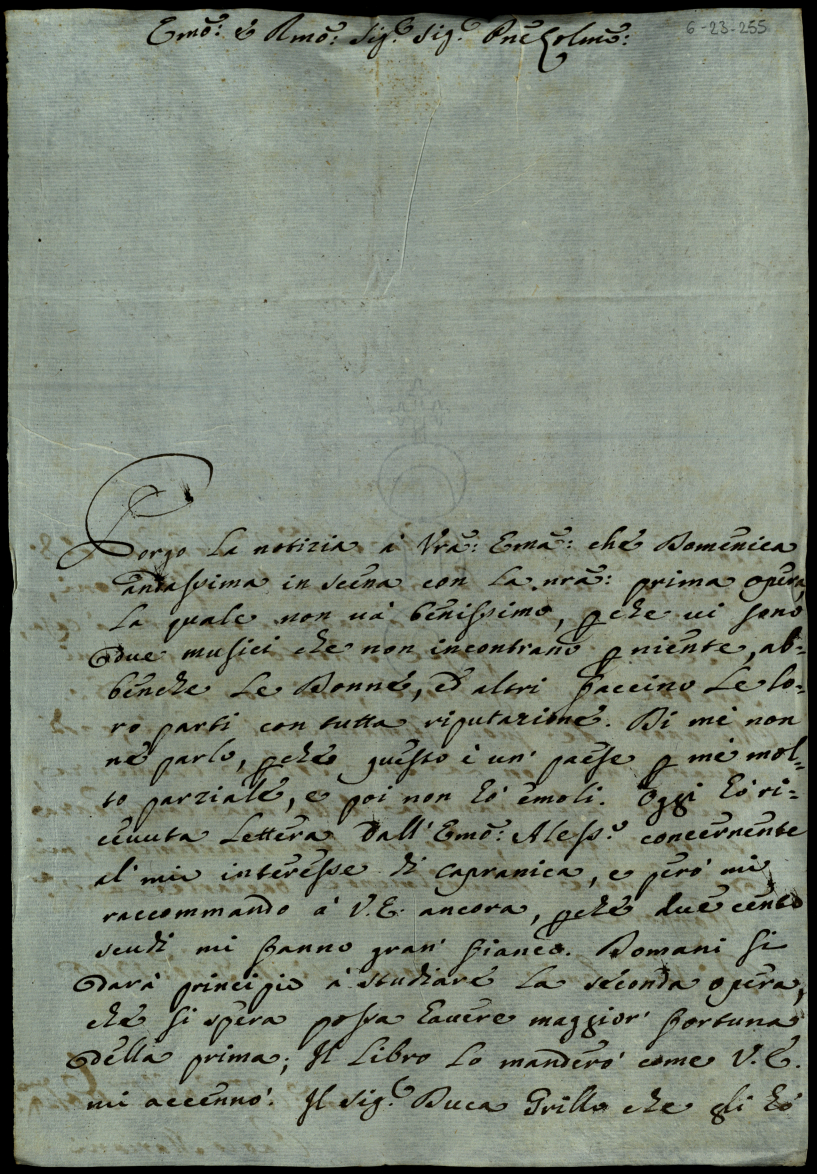 6-23-255
Emõ: e Rmõ: Sig.e Sig.e Pñe Colmõ:
Porgo la notizia à Vrã: Emã: che Domenica
andassimo in scena con la nrã: prima opera,
la quale non và benissimo, pche vi sono
due musici che non incontrano p niente, ab=
benche le Donne, ed altri faccino le lo=
ro parti con tutta riputazione. Di me non
ne parlo, pche questo è un' paese p me mol=
to parziale, e poi non hò emoli. Oggi hò ri=
cevuta Lettera dall' Emõ: Aless.o concernente
al' mio interesse di Capranica, e però mi
raccommando à V.E. ancora, pche due cento
scudi mi fanno gran' fianco. Domani si
darà principio à studiare la seconda opera,
che si spera possa havere maggior' fortuna
della prima; Il Libro lo manderò come V.E.
mi accennò. Il Sig.e Duca Grillo che gli hò